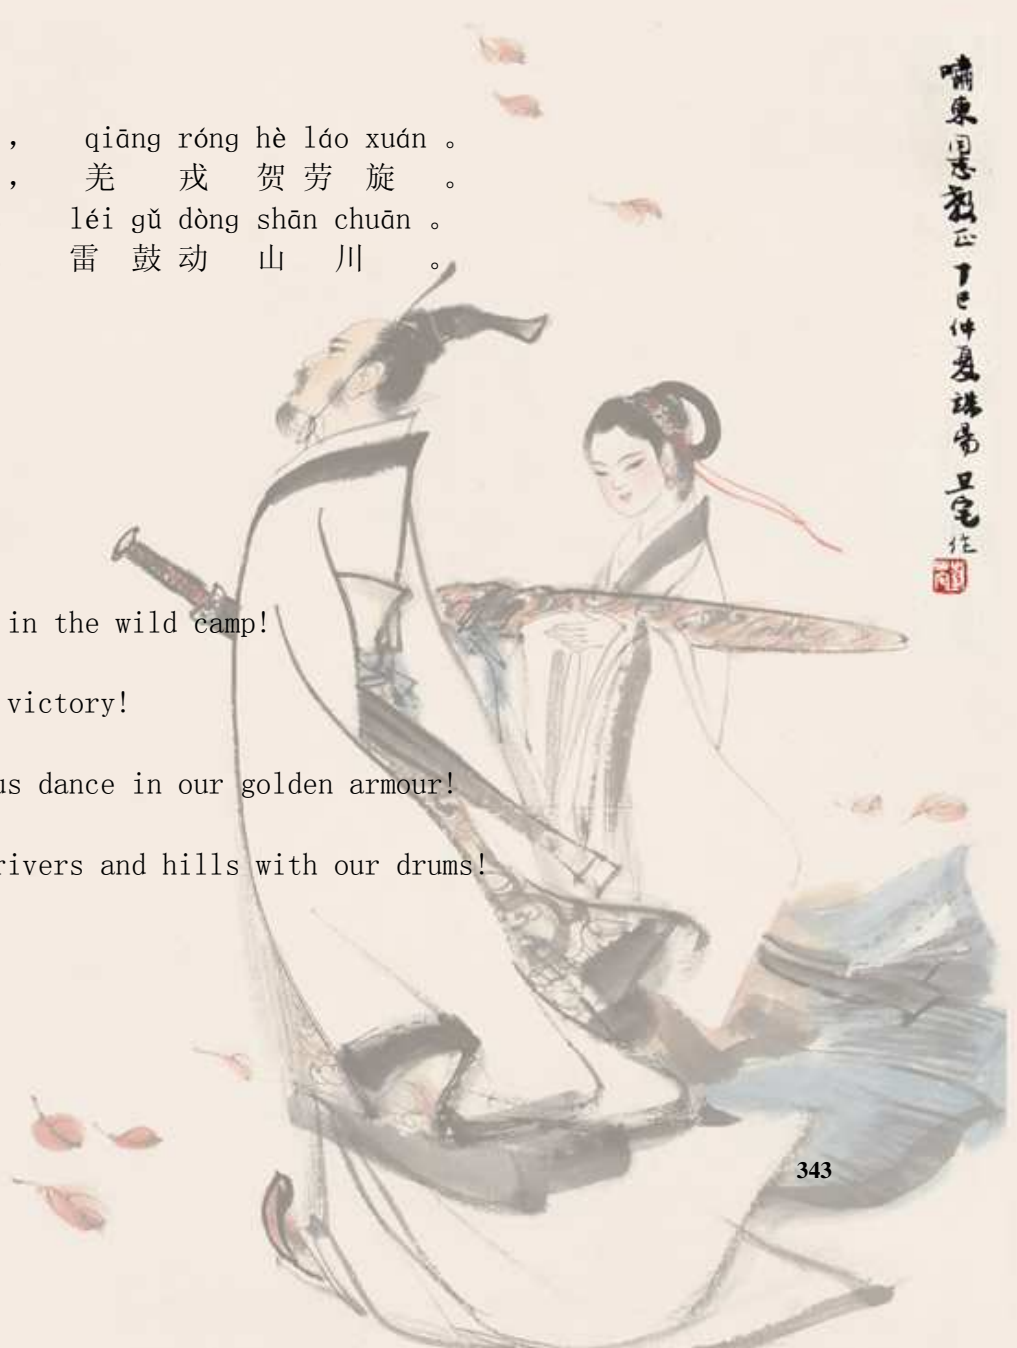 ， qiāng róng hè láo xuán 。
， 羌 戎 贺 劳 旋 。
léi gǔ dòng shān chuān 。
雷 鼓 动 山 川 。
in the wild camp!
victory!
us dance in our golden armour!
rivers and hills with our drums!
343
教正丁巳仲夏
作